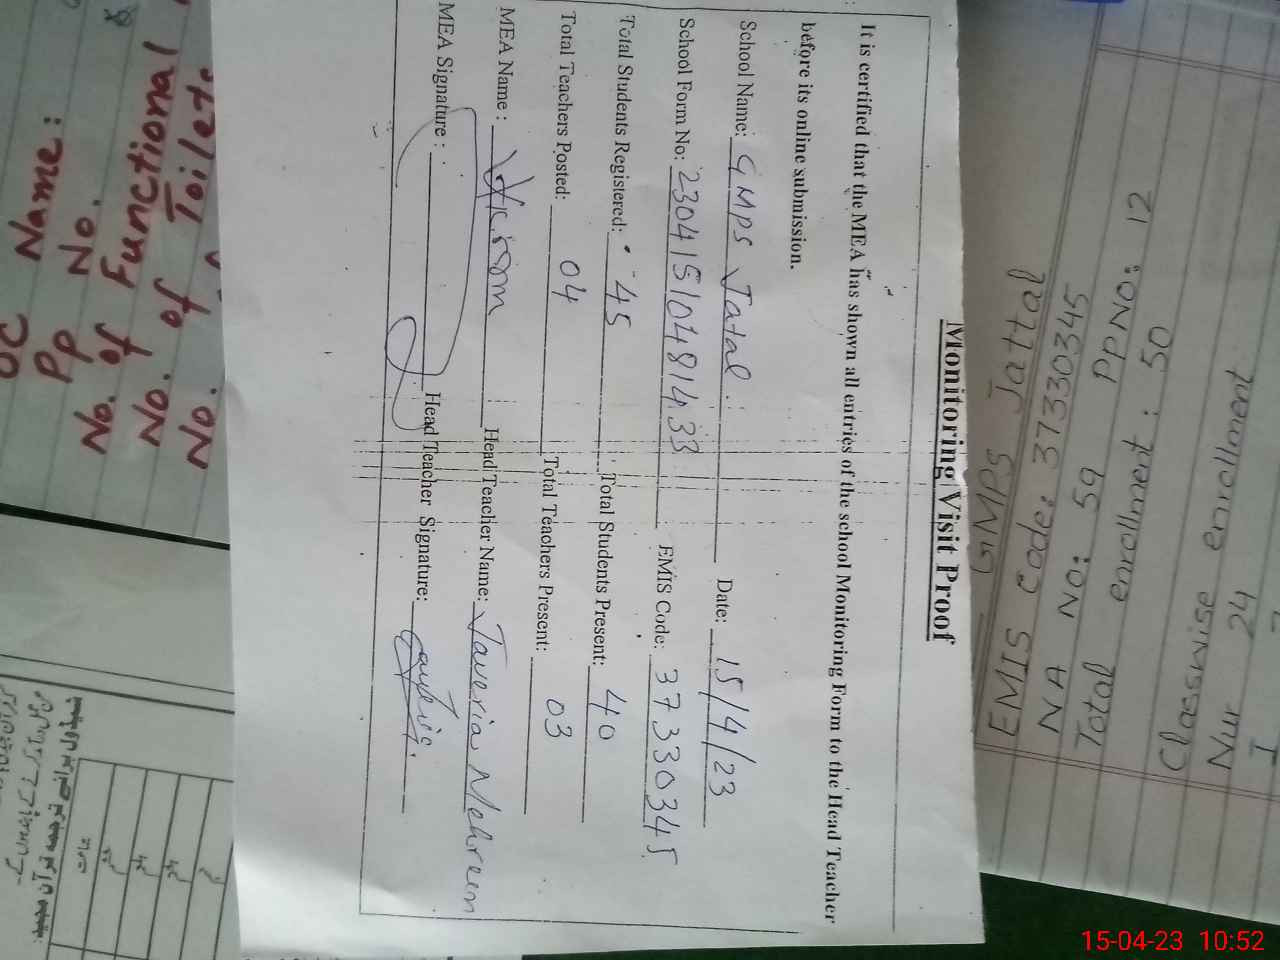 Monitoring Visit Proof
It is certified that the MEA has shown all entries of the school Monitoring Form to the Head Teacher
before its online submission.
School Name: GMPS Jatal. Date: 15/4/23
School Form No: 23041510481433 EMIS Code: 37330345
Total Students Registered: 45 Total Students Present: 40
Total Teachers Posted: 04 Total Teachers Present: 03
MEA Name: Akram Head Teacher Name: Javeria Mehreen
MEA Signature: Head Teacher Signature:
GMPS Jattal
EMIS Code: 37330345
NA NO: 59 PPNO: 12
Total enrollment: 50
Classwise enrollment
Nur 24
I
UC Name:
PP No.
No. of Functional
No. of Toilets
No.
15-04-23 10:52